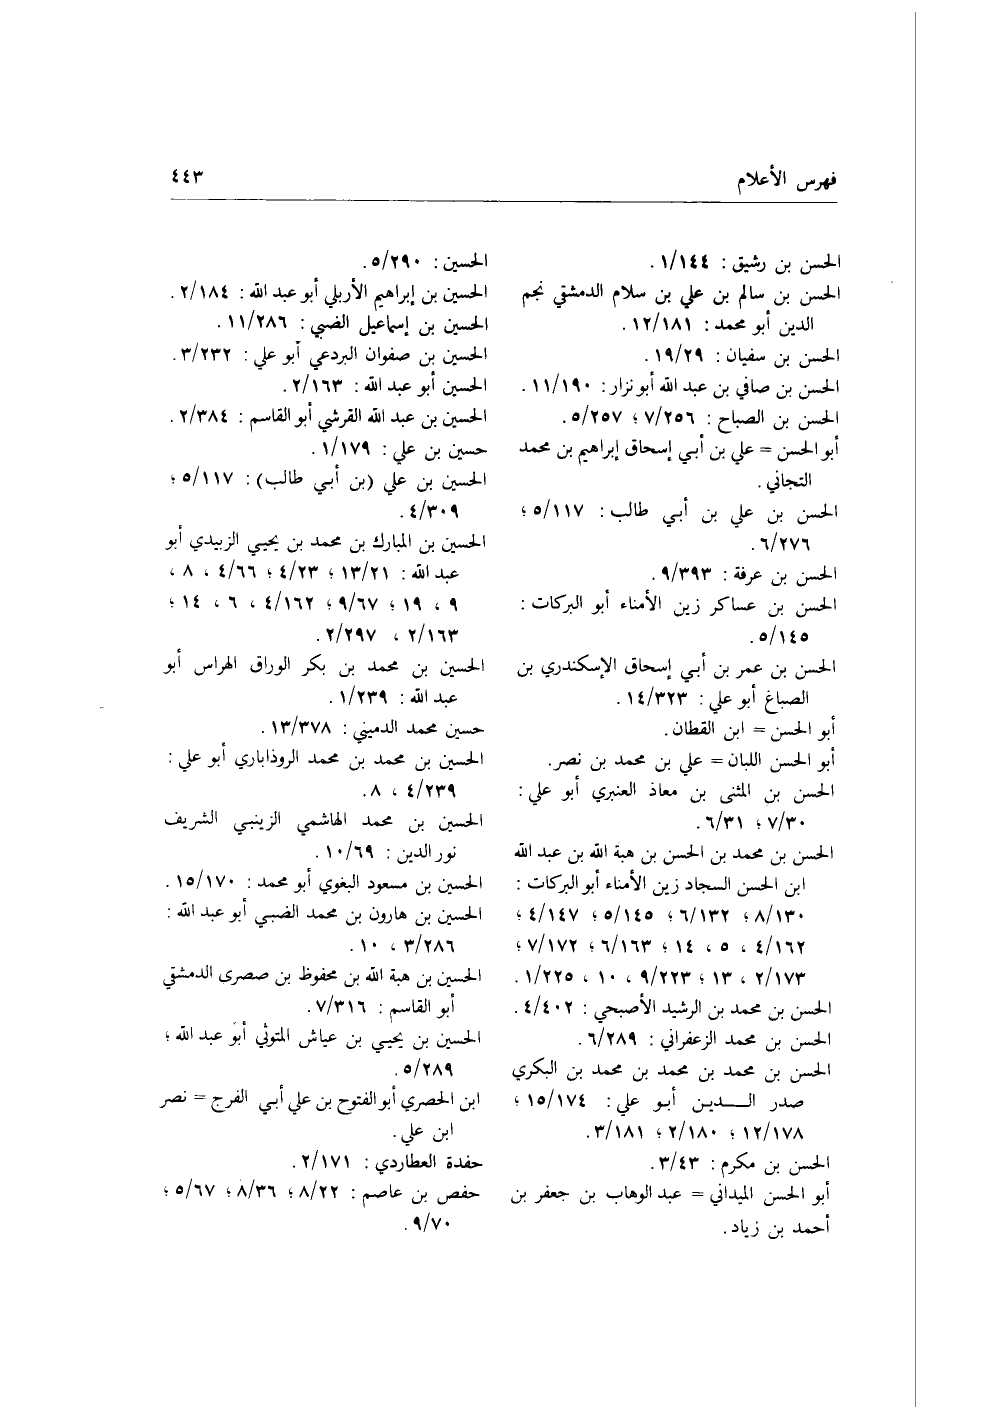 فهرس الأعلام ٤٤٣
الحسن بن رشيق : ١/١٤٤ .
الحسن بن سالم بن علي بن سلام الدمشقي نجم
الدين أبو محمد : ١٢/١٨١ .
الحسن بن سفيان : ١٩/٢٩ .
الحسن بن صافي بن عبد الله أبو نزار : ١١/١٩٠ .
الحسن بن الصباح : ٧/٢٥٦ ؛ ٥/٢٥٧ .
أبو الحسن = علي بن أبي إسحاق إبراهيم بن محمد
التجاني .
الحسن بن علي بن أبي طالب : ٥/١١٧ ؛
٦/٢٧٦ .
الحسن بن عرفة : ٩/٣٩٣ .
الحسن بن عساكر زين الأمناء أبو البركات :
٥/١٤٥ .
الحسن بن عمر بن أبي إسحاق الإسكندري بن
الصباغ أبو علي : ١٤/٣٢٣ .
أبو الحسن = ابن القطان .
أبو الحسن اللبان = علي بن محمد بن نصر .
الحسن بن المثنى بن معاذ العنبري أبو علي :
٧/٣٠ ؛ ٦/٣١ .
الحسن بن محمد بن الحسن بن هبة الله بن عبد الله
ابن الحسن السجاد زين الأمناء أبو البركات :
٨/١٣٠ ؛ ٦/١٣٢ ؛ ٥/١٤٥ ؛ ٤/١٤٧ ؛
٤/١٦٢ ، ٥ ، ١٤ ؛ ٦/١٦٣ ؛ ٧/١٧٢ ؛
٢/١٧٣ ، ١٣ ؛ ٩/٢٢٣ ، ١٠ ، ١/٢٢٥ .
الحسن بن محمد بن الرشيد الأصبحي : ٤/٤٠٢ .
الحسن بن محمد الزعفراني : ٦/٢٨٩ .
الحسن بن محمد بن محمد بن محمد بن البكري
صدر الـــدين أبو علي : ١٥/١٧٤ ؛
١٢/١٧٨ ؛ ٢/١٨٠ ؛ ٣/١٨١ .
الحسن بن مكرم : ٣/٤٣ .
أبو الحسن الميداني = عبد الوهاب بن جعفر بن
أحمد بن زياد .
الحسين : ٥/٢٩٠ .
الحسين بن إبراهيم الأربلي أبو عبد الله : ٢/١٨٤ .
الحسين بن إسماعيل الضبي : ١١/٢٨٦ .
الحسين بن صفوان البردعي أبو علي : ٣/٢٣٢ .
الحسين أبو عبد الله : ٢/١٦٣ .
الحسين بن عبد الله القرشي أبو القاسم : ٢/٣٨٤ .
حسين بن علي : ١/١٧٩ .
الحسين بن علي (بن أبي طالب) : ٥/١١٧ ؛
٤/٣٠٩ .
الحسين بن المبارك بن محمد بن يحيى الزبيدي أبو
عبد الله : ١٣/٢١ ؛ ٤/٢٣ ؛ ٤/٦٦ ، ٨ ،
٩ ، ١٩ ؛ ٩/٦٧ ؛ ٤/١٦٢ ، ٦ ، ١٤ ؛
٢/١٦٣ ، ٢/٢٩٧ .
الحسين بن محمد بن بكر الوراق الهراس أبو
عبد الله : ١/٢٣٩ .
حسين محمد الدميني : ١٣/٣٧٨ .
الحسين بن محمد بن محمد الروذاباري أبو علي :
٤/٢٣٩ ، ٨ .
الحسين بن محمد الهاشمي الزينبي الشريف
نور الدين : ١٠/٦٩ .
الحسين بن مسعود البغوي أبو محمد : ١٥/١٧٠ .
الحسين بن هارون بن محمد الضبي أبو عبد الله :
٣/٢٨٦ ، ١٠ .
الحسين بن هبة الله بن محفوظ بن صصرى الدمشقي
أبو القاسم : ٧/٣١٦ .
الحسين بن يحيى بن عياش المتوثي أبو عبد الله ؛
٥/٢٨٩ .
ابن الحصري أبو الفتوح بن علي أبي الفرج = نصر
ابن علي .
حفدة العطاردي : ٢/١٧١ .
حفص بن عاصم : ٨/٢٢ ؛ ٨/٣٦ ؛ ٥/٦٧ ؛
٩/٧٠ .